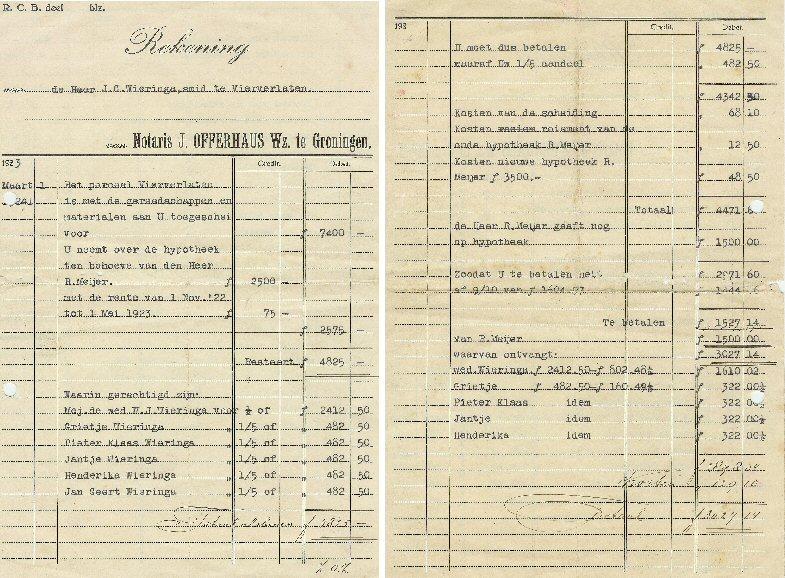 R. C. B. deel blz.
Rekening
de Heer J.G.Wieringa, smid te Vierverlaten.
Notaris J. OFFERHAUS Wz. te Groningen,
1923 Credit. Debet.
Maart 1 Het perceel Vierverlaten
24 is met de gereedschappen en
materialen aan U toegeschei
voor f 7400 —
U neemt over de hypotheek
ten behoeve van den Heer
R.Meijer. f 2500 —
met de rente van 1 Nov.'22
tot 1 Mei 1923. f 75 —
2575 —
Resteert f 4825 —
Waarin gerechtigd zijn:
Mej.de wed.W.J.Wieringa voor ½ of f 2412 50
Grietje Wieringa " 1/5 of " 482 50
Pieter Klaas Wieringa " 1/5 of " 482 50
Jantje Wieringa " 1/5 of " 482 50
Henderika Wieringa " 1/5 of " 482 50
Jan Geert Wieringa " 1/5 of " 482 50
f 4825 —
Z.O.Z.
192 Credit. Debet.
U moet dus betalen f 4825 —
waaraf Uw 1/5 aandeel f 482 50
f 4342 50
Kosten van de scheiding f 68 10
Kosten roiement van de
oude hypotheek R.Meyer f 12 50
Kosten nieuwe hypotheek R.
Meyer f 3500.- f 48 50
Totaal f 4471 6
de Heer R.Meyer geeft nog
op hypotheek f 1500 00
Zoodat U te betalen hebt f 2971 60
af 9/10 van f 1604.97 f 1444
Te betalen f 1527 14
van R.Meijer f 1500 00
f 3027 14
waarvan ontvangt:
wed.Wieringa f 2412.50—f 802.48½ f 1610 02
Grietje f 482.50—f 160.49½ f 322 00½
Pieter Klaas idem f 322 00½
Jantje idem f 322 00½
Henderika idem f 322 00½
f 2898 04
129 10
f 3027 14